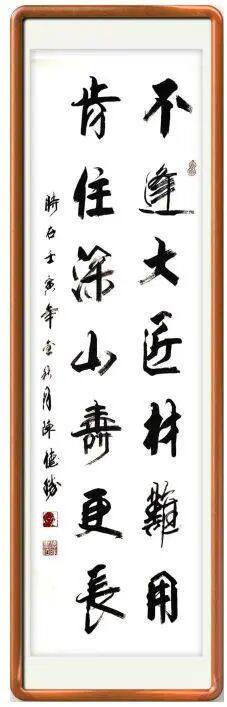 不逢大匠材難用
肯住深山壽更長
時在壬寅年金秋月陳德勝